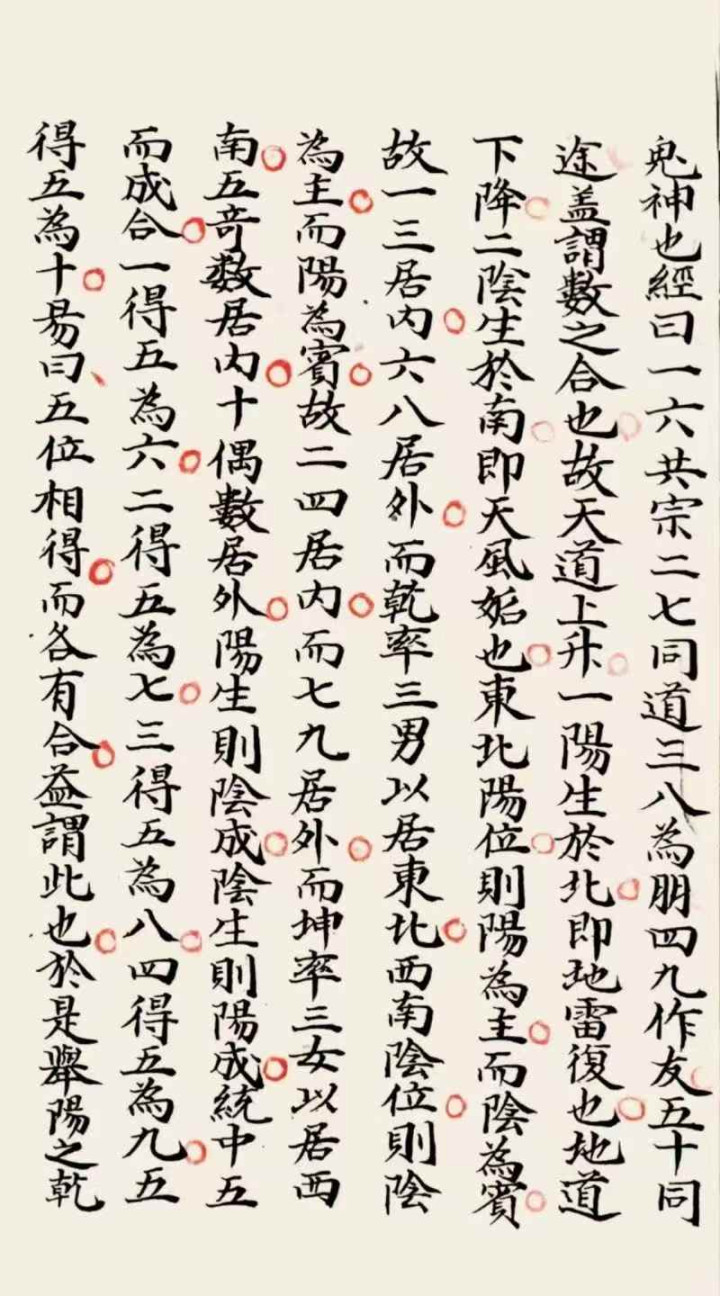 鬼神也經曰一六共宗二七同道三八為朋四九作友五十同
途盖謂數之合也故天道上升一陽生於北即地雷復也地道
下降二陰生於南即天風姤也東北陽位則陽為主而陰為賓
故一三居内六八居外而乾率三男以居東北西南陰位則陰
為主而陽為賓故二四居内而七九居外而坤率三女以居西
南五奇數居内十偶數居外陽生則陰成陰生則陽成統中五
而成合一得五為六二得五為七三得五為八四得五為九五
得五為十易曰五位相得而各有合益謂此也於是舉陽之乾